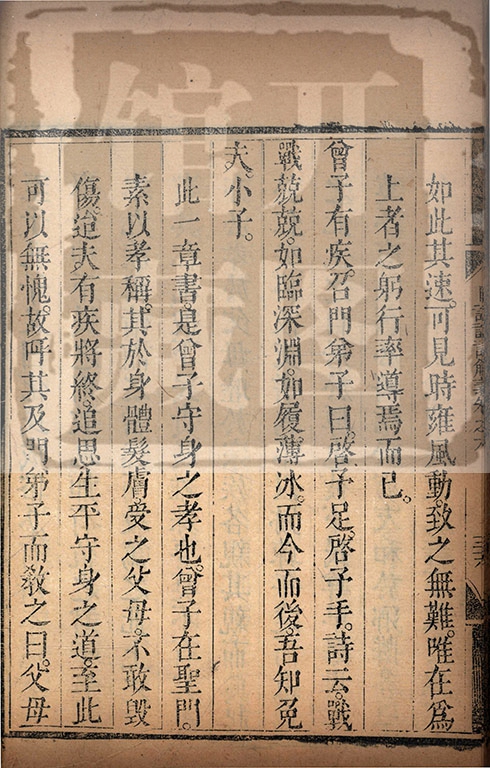 如此其速。可見時雍風動。致之無難。唯在爲
上者之躬行率導焉而已。
曾子有疾。召門弟子曰。啓予足。啓予手。詩云。戰
戰兢兢。如臨深淵。如履薄冰。而今而後。吾知免
夫。小子。
此一章書。是曾子守身之孝也。曾子在聖門。
素以孝稱。其於身體髮膚。受之父母。不敢毀
傷。迨夫有疾將終。追思生平守身之道。至此
可以無愧。故呼其及門弟子而敎之曰。父母